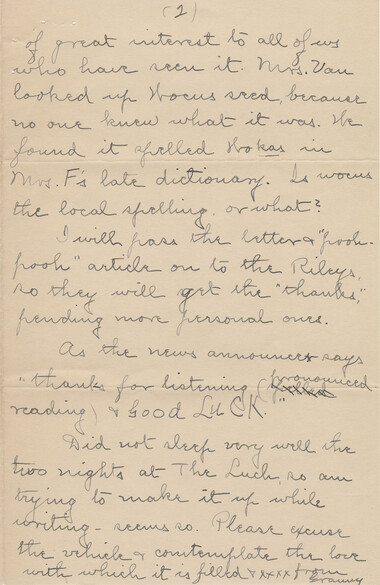 (2)
of great interest to all of us
who have seen it. Mrs. Van
looked up Wocus seed, because
no one knew what it was. We
found it spelled Wokas in
Mrs. F's late dictionary. Is wocus
the local spelling, or what?
I will pass the letter & "pooh-
pooh" article on to the Rileys,
so they will get the "thanks,"
pending more personal ones.
As the news announcer says
"thanks for listening (pronounced
reading) & GOOD LUCK."
Did not sleep very well the
two nights at The Luck, so am
trying to make it up while
writing - seems so. Please excuse
the vehicle & contemplate the love
with which it is filled & xxxx from
Granny